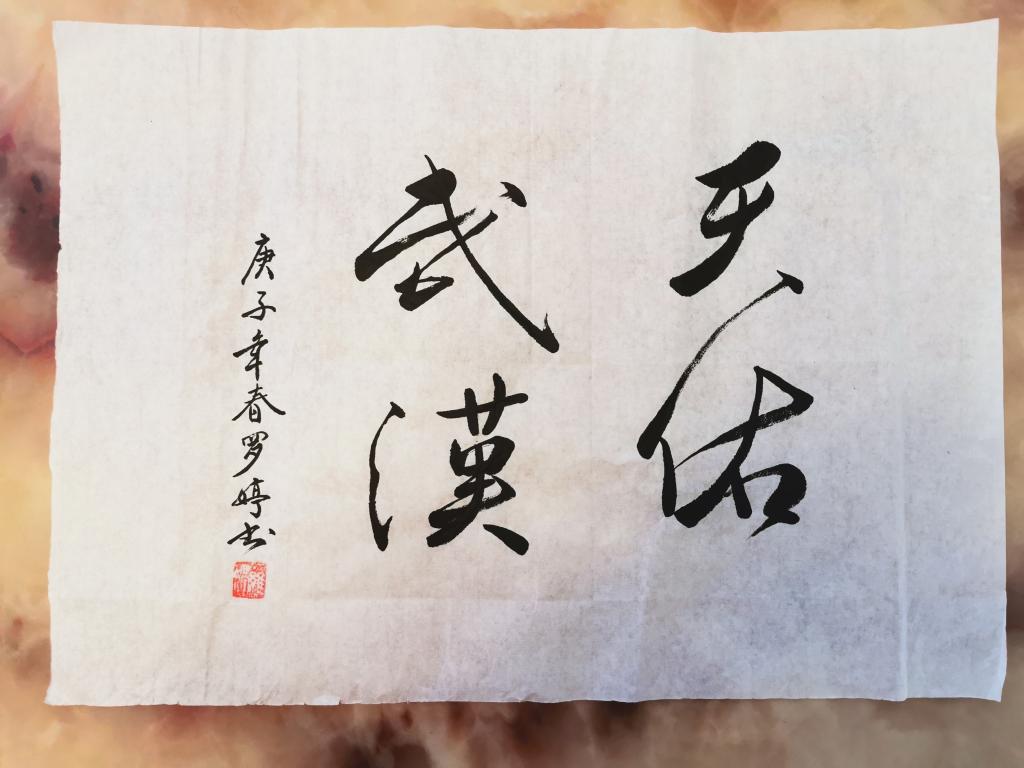 天佑
武漢
庚子年春罗婷书